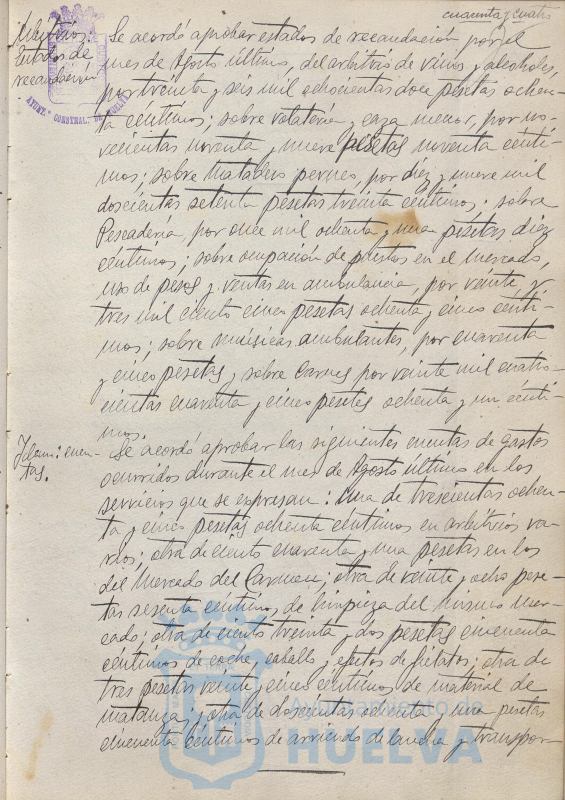 cuarenta y cuatro
Arbitrios.
Estados de
recaudación
AYUNT.º CONSTNAL. DE HUELVA
Se acordó aprobar estados de recaudación por el
mes de Agosto último, del arbitrio de vinos y alcoholes,
por treinta y seis mil ochocientas doce pesetas ochen-
ta céntimos; sobre volatería y caza menor, por no-
vecientas noventa y nueve pesetas noventa cénti-
mos; sobre matadero permes, por diez y nueve mil
doscientas setenta pesetas treinta céntimos; sobre
Pescadería, por once mil ochenta y una pesetas diez
céntimos; sobre ocupación de puestos en el mercado,
uso de pesos y ventas en ambulancia, por veinte y
tres mil ciento cinco pesetas ochenta y cinco cénti-
mos; sobre músicas ambulantes, por cuarenta
y cinco pesetas y sobre Carnes por veinte mil cuatro-
cientas cuarenta y cinco pesetas ochenta y un cénti-
mos.
Idem: cuen-
tas.
Se acordó aprobar las siguientes cuentas de gastos
ocurridos durante el mes de Agosto último en los
servicios que se expresan: una de trescientas ochen-
ta y cinco pesetas ochenta céntimos en arbitrios va-
rios; otra de ciento cuarenta y una pesetas en los
del Mercado del Carmen; otra de veinte y ocho pese-
tas sesenta céntimos de limpieza del mismo Mer-
cado; otra de ciento treinta y dos pesetas cincuenta
céntimos de coche, caballo y efectos de fielatos; otra de
tres pesetas veinte y cinco céntimos de material de
matanza; otra de doscientas ochenta y una pesetas
cincuenta céntimos de arriendo de lancha y transpor-
Ayuntamiento de
HUELVA